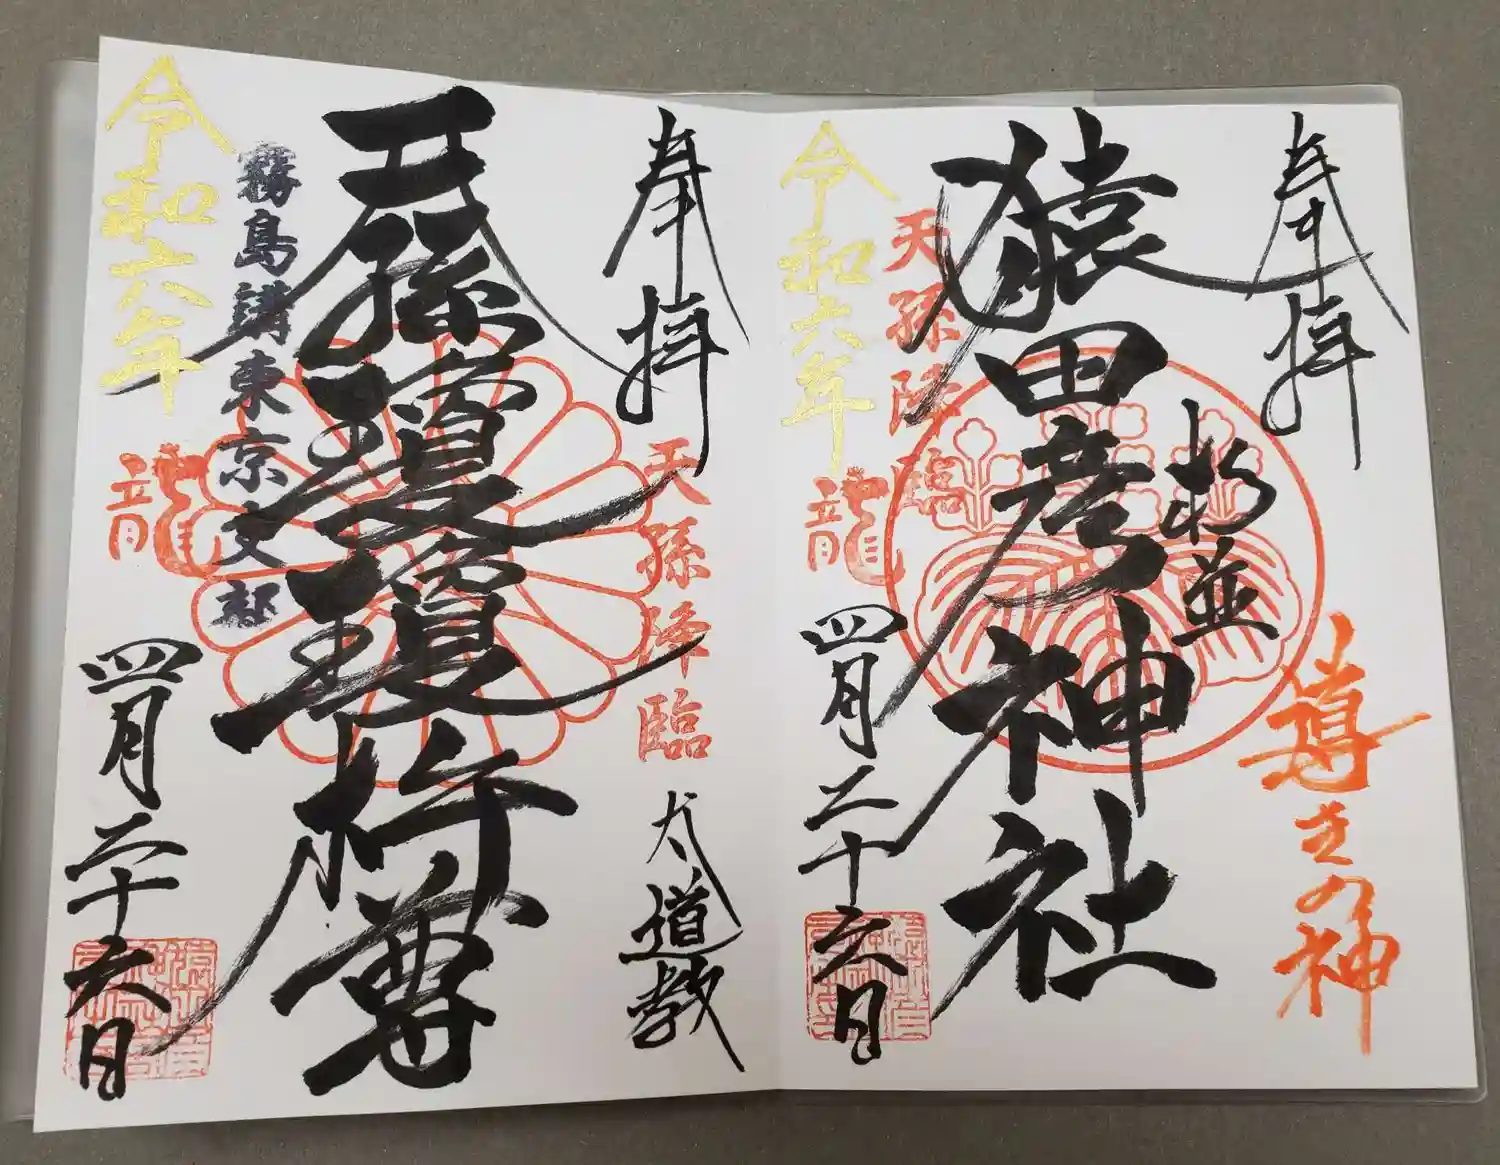 奉拝
杉並
猿田彦神社
導きの神
天孫降臨
令和六年
辰
四月二十六日
奉拝
天孫降臨
大道教
天孫瓊瓊杵尊
霧島講東京支部
令和六年
四月二十六日